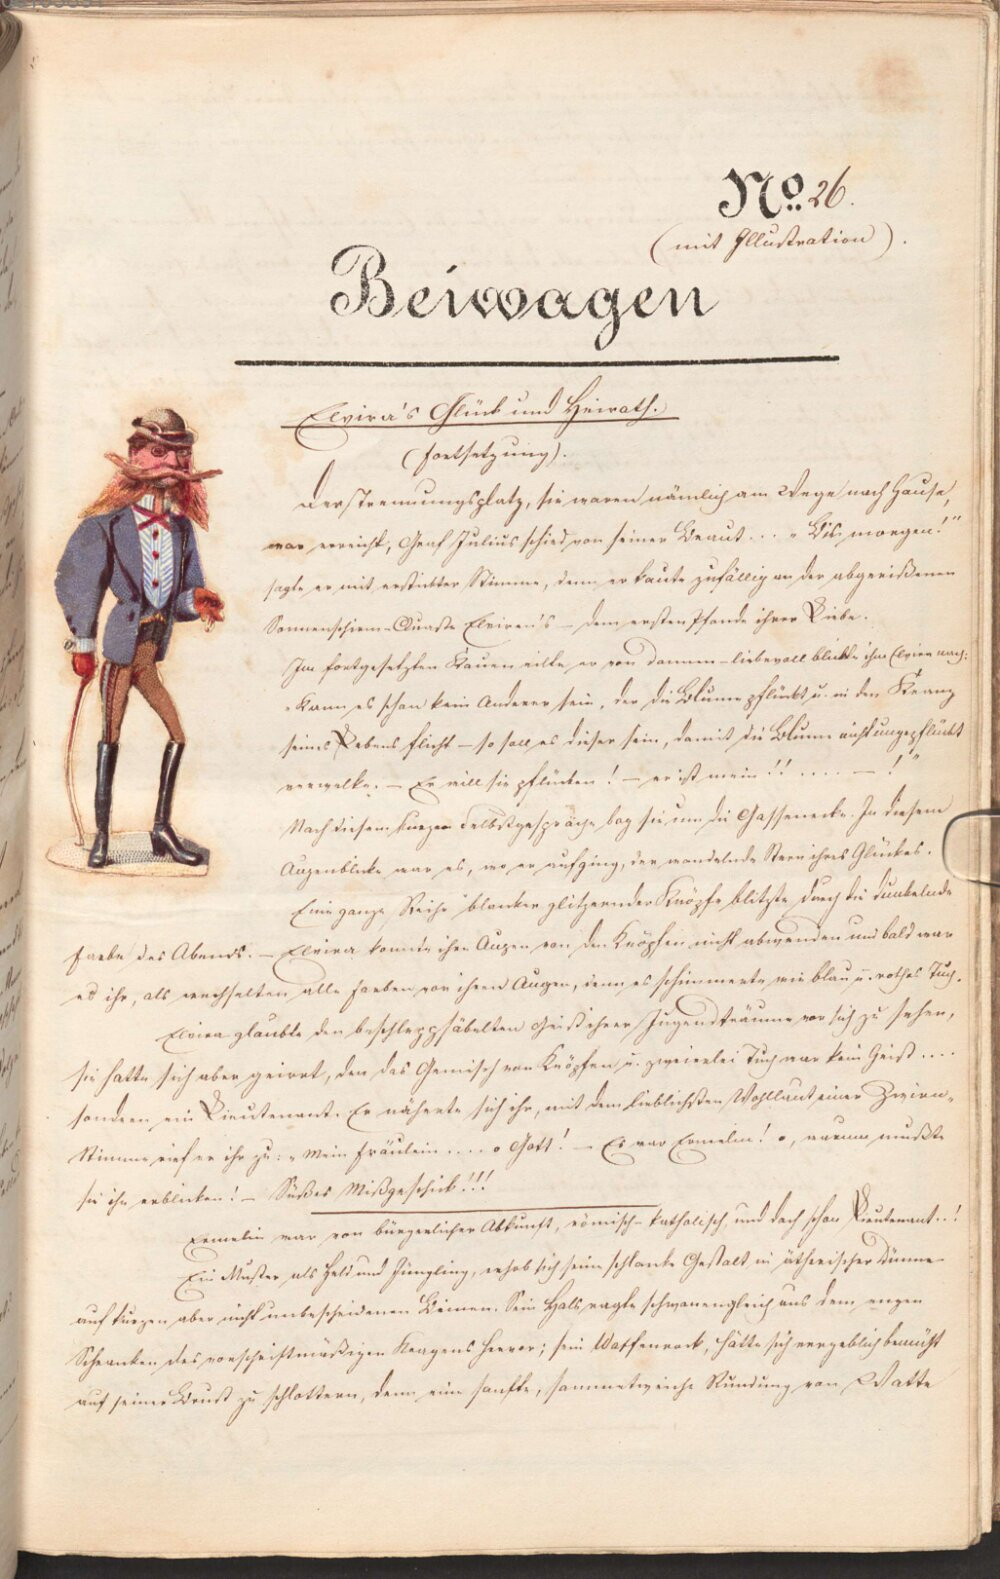 No. 26.
(mit Illustration).
Beiwagen
Elvira's Glück und Heirath.
(Fortsetzung).
Der Trennungsplatz, sie waren nämlich am Wege nach Hause,
war erreicht, Graf Julius schied von seiner Braut... „Bis morgen!“
sagte er mit erstickter Stimme, denn er kaute zufällig an der abgerißenen
Sonnenschirm-Quaste Elviren's – dem ersten Pfande ihrer Liebe.
Im fortgesetzten Kauen eilte er von dannen – liebevoll blickte ihm Elvira nach:
„Kann es schon kein Anderer sein, der die Blume pflückt u. in den Kranz
seines Lebens flicht – so soll es dieser sein, damit die Blume nicht ungepflückt
verwelke. – Er will sie pflücken! – er ist mein!! .... – !“
Nach diesem kurzen Selbstgespräche bog sie um die Gassenecke. In diesem
Augenblicke war es, wo er aufging, der wandelnde Stern ihres Glückes.
Eine ganze Reihe blanker glitzernder Knöpfe blitzte durch die dunkelnde
Farbe des Abends. – Elvira konnte ihre Augen von den Knöpfen nicht abwenden und bald war
es ihr, als wechselten alle Farben vor ihren Augen, denn es schimmerte wie blau u. rothes Tuch.
Elvira glaubte den beschleppsäbelten Geist ihrer Jugendträume vor sich zu sehen,
sie hatte sich aber geirrt, den das Gemisch von Knöpfen u. zweierlei Tuch war kein Geist....
sondern ein Lieutenant. Er näherte sich ihr, mit dem lieblichsten Wohllaut einer Zwirn-
Stimme rief er ihr zu: „Mein Fräulein.... o Gott! – Es war Ermelin! o, warum mußte
sie ihn erblicken! – Süßes Mißgeschick!!!
Ermelin war von bürgerlicher Abkunft, römisch-katholisch, und doch schon Lieutenant..!
Ein Muster als Held und Jüngling, erhob sich seine schlanke Gestalt in ätherischer Dünne
auf kurzen aber nicht unbescheidenen Beinen. Sein Hals ragte schwanengleich aus dem engen
Schranken des vorschriftmäßigen Kragens hervor; sein Waffenrock, hätte sich vergeblich bemüht
auf seiner Brust zu schlottern, denn eine sanfte, sammetweiche Rundung von Watte